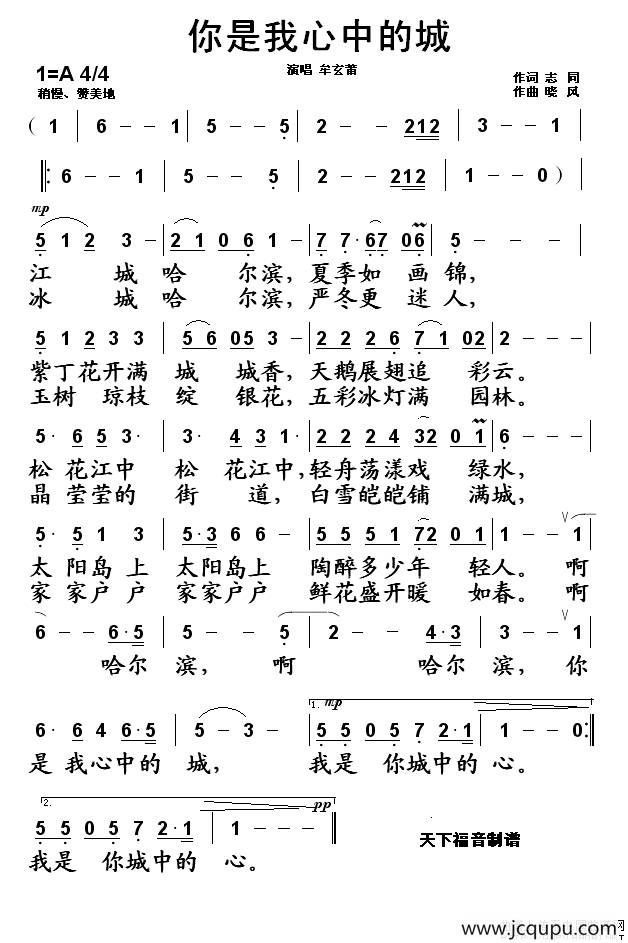 你是我心中的城
1=A 4/4
演唱 牟玄莆
作词 志 同
稍慢、赞美地
作曲 晓 风
( 1 | 6 - - 1 | 5 - - 5 | 2 - - 212 | 3 - - 1
6 - - 1 | 5 - - 5 | 2 - - 212 | 1 - - 0 )
mp
5 1 2 3 - | 2 1 0 6 1 | 7 7· 67 06 | 5 - - -
江 城 哈 尔滨, 夏季如 画锦,
冰 城 哈 尔滨, 严冬更 迷人,
5 1 2 3 3 | 5 6 05 3 | 2 2 2 6 7 1 02 | 2 - - -
紫丁花开满 城 城香, 天鹅展翅追 彩云。
玉树 琼枝 绽 银花, 五彩冰灯满 园林。
5· 6 5 3· | 3· 4 3 1· | 2 2 2 4 32 0 1 | 6 - - -
松 花江中 松 花江中, 轻舟荡漾戏 绿水,
晶 莹莹的 街 道, 白雪皑皑铺 满城,
5· 5 1 3 | 5·3 6 6 | 5 5 5 1 72 0 1 | 1 - - V 1
太 阳岛上 太阳岛上 陶醉多少年 轻人。 啊
家 家户户 家家户户 鲜花盛开暖 如春。 啊
6 - - 6·5 | 5 - - 5 | 2 - - 4·3 | 3 - - V 1
哈尔 滨, 啊 哈尔 滨, 你
1. mp
6· 6 4 6·5 | 5 - 3 - | 5 5 0 5 7 2·1 | 1 - - 0
是 我心中的 城, 我是 你城中的 心。
2. pp
5 5 0 5 7 2·1 | 1 - - -
我是 你城中的 心。
天下福音制谱
www.jcqupu.com